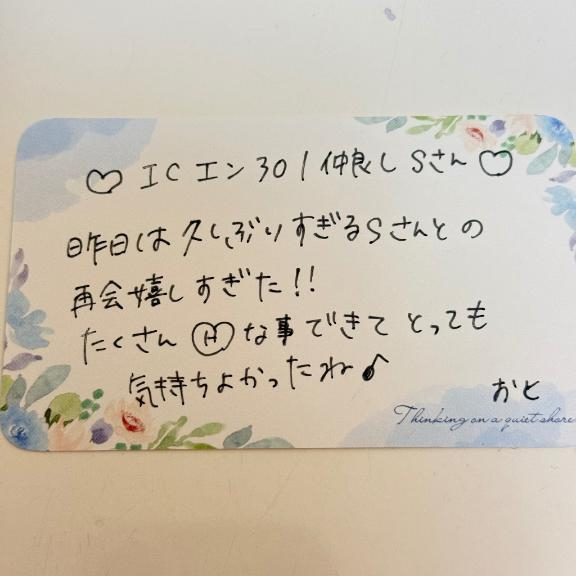 ♡ ICエン301仲良しSさん ♡
昨日は久しぶりすぎるSさんとの
再会嬉しすぎた!!
たくさん Ⓗ な事できてとっても
気持ちよかったね♪
おと
Thinking on a quiet shore